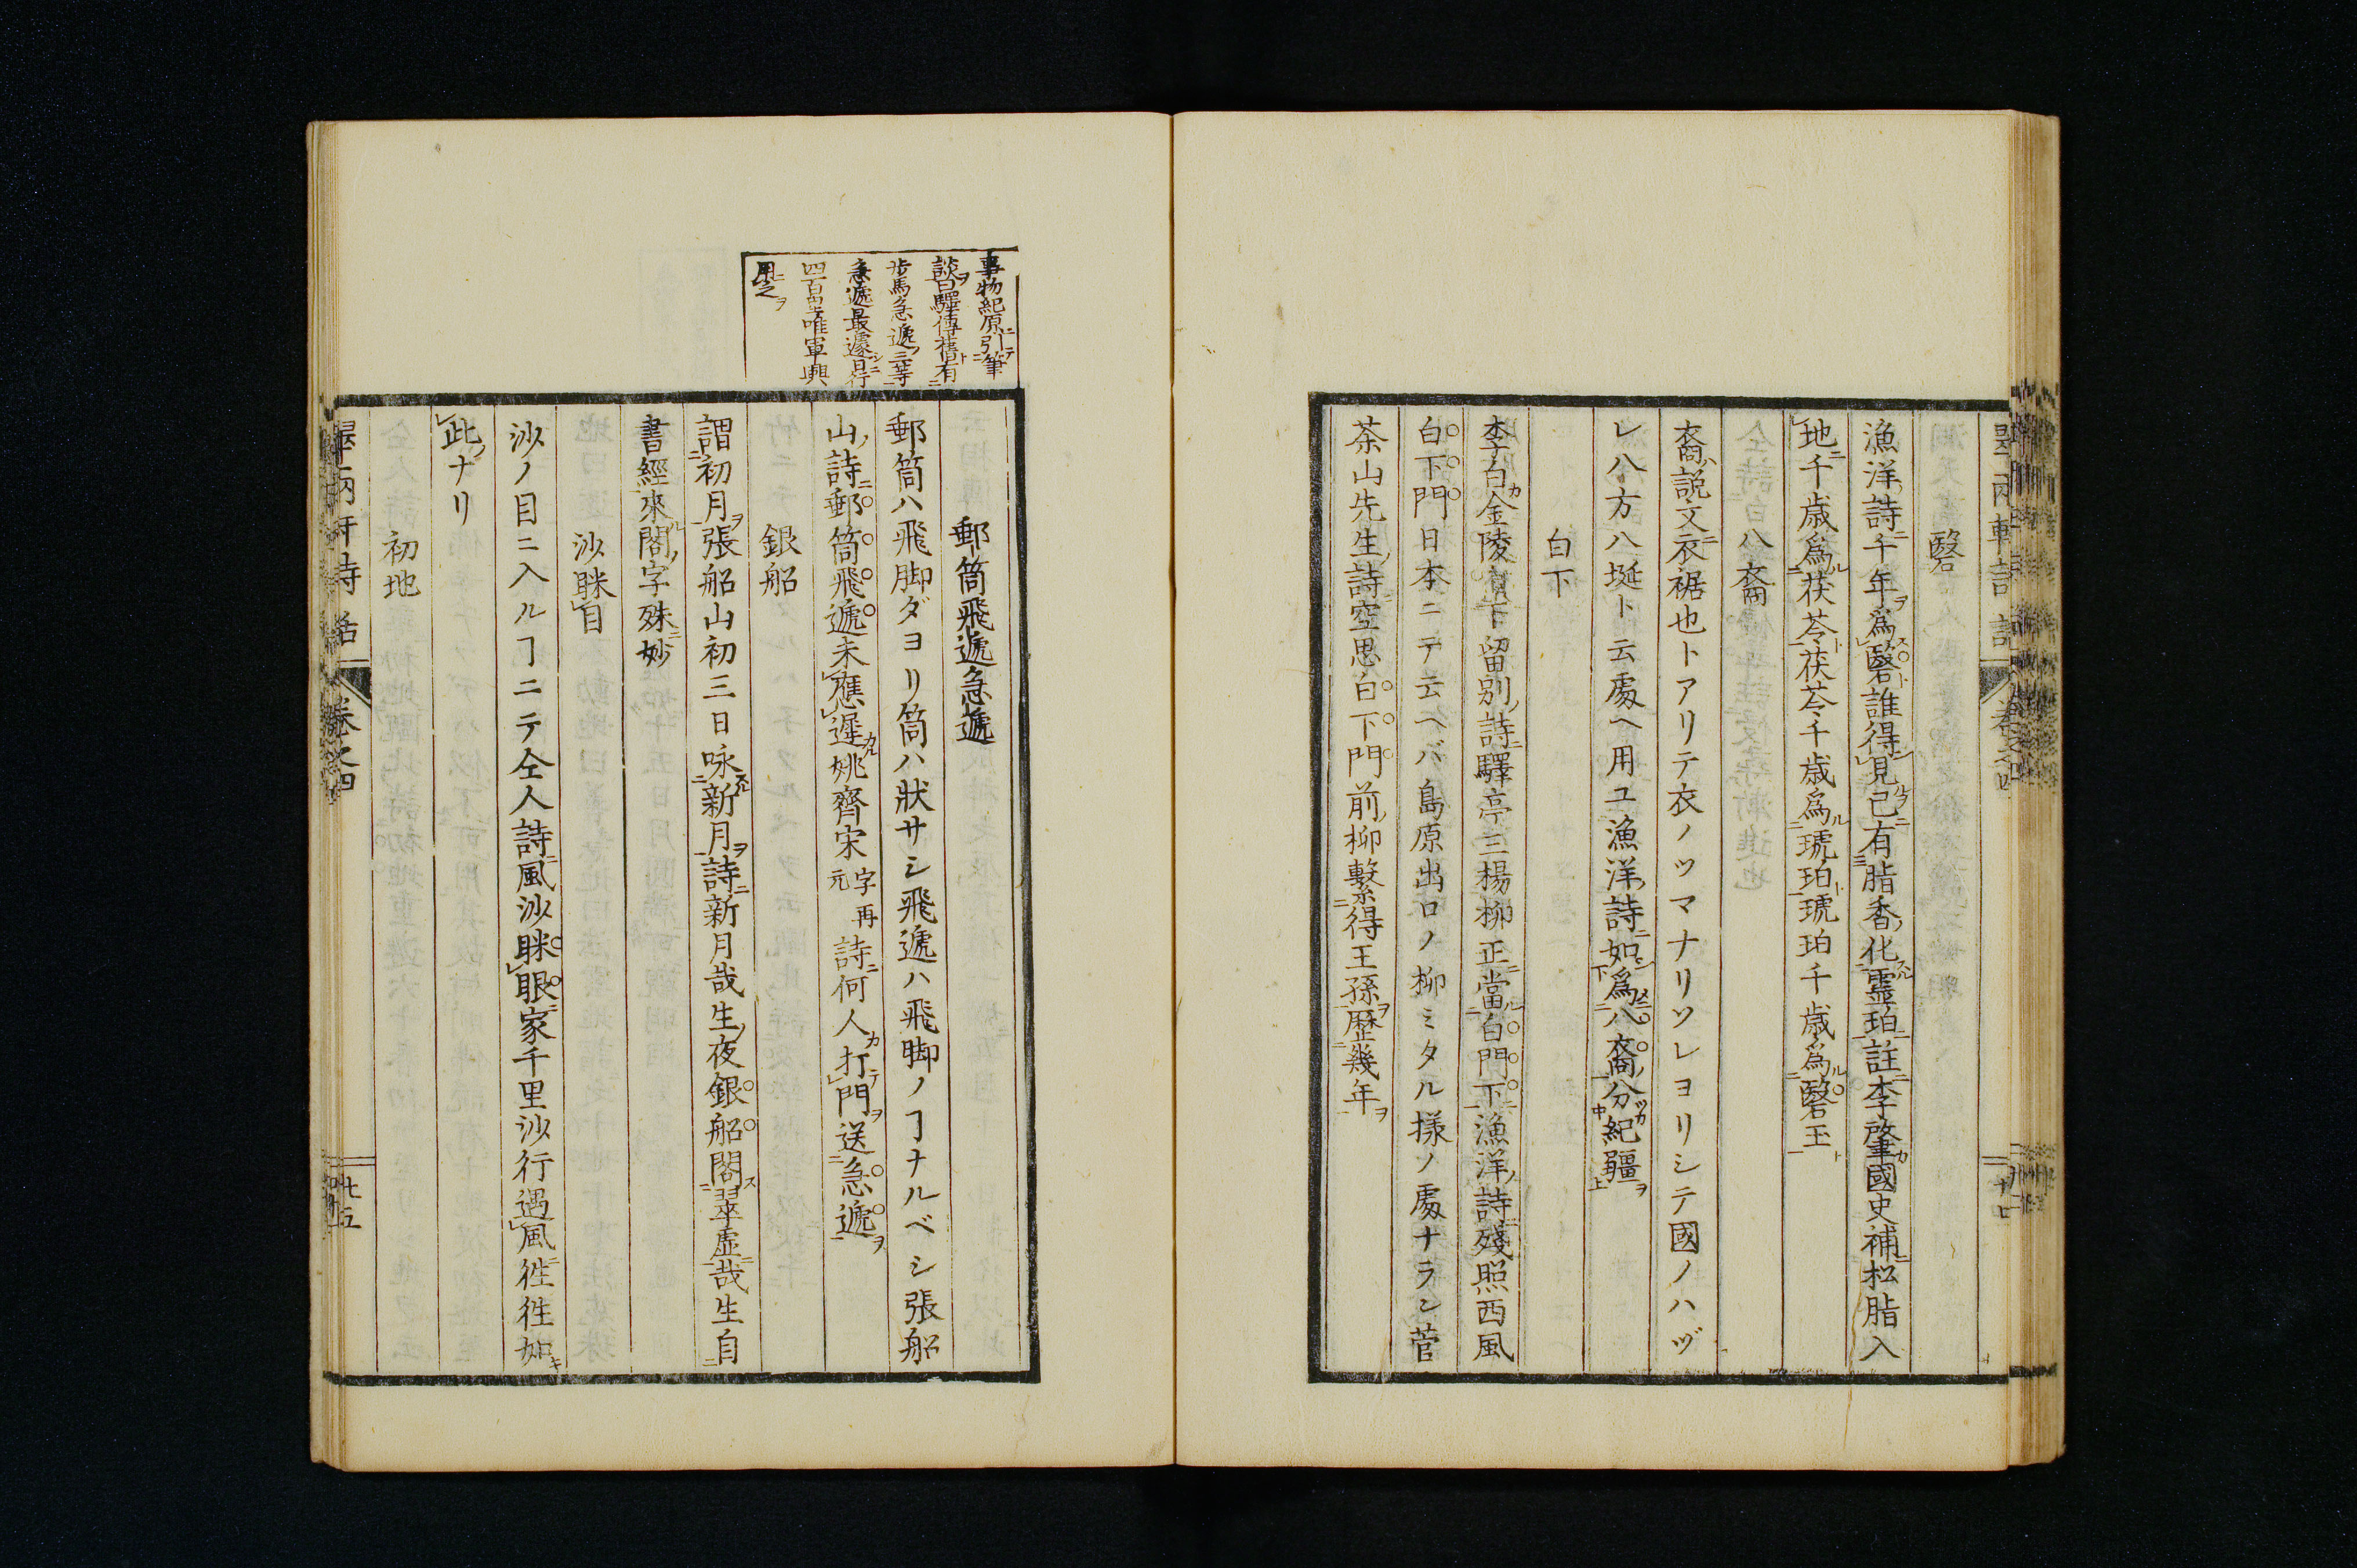 瑿
漁洋詩千年爲瑿誰得見已有脂香化靈珀註李肇國史補松脂入
地千歳爲茯苓茯苓千歳爲琥珀琥珀千歳爲瑿玉
八裔
裔説文衣裾也トアリテ衣ノツマナリソレヨリシテ國ノハヅ
レ八方八埏ト云處ヘ用ユ漁洋詩如爲八裔分紀疆
白下
李白金陵白下留別詩驛亭三楊柳正當白門下漁洋詩殘照西風
白下門日本ニテ云ヘバ島原出口ノ柳ミタル樣ノ處ナラン菅
茶山先生詩空思白下門前柳繫得王孫歷幾年
事物紀原引筆
談曰驛傳舊有
步馬急遞三等
急遞最遽日行
四百里唯軍興
用之
郵筒飛遞急遞
郵筒ハ飛脚ダヨリ筒ハ狀サシ飛遞ハ飛脚ノヿナルベシ張船
山詩郵筒飛遞未應遲姚齊宋字再元詩何人打門送急遞
銀船
謂初月張船山初三日咏新月詩新月哉生夜銀船閣翠虛哉生自
書經來閣字殊妙
沙眯目
沙ノ目ニ入ルヿニテ仝人詩風沙眯眼家千里沙行遇風徃徃如
此ナリ
初地
卷之四